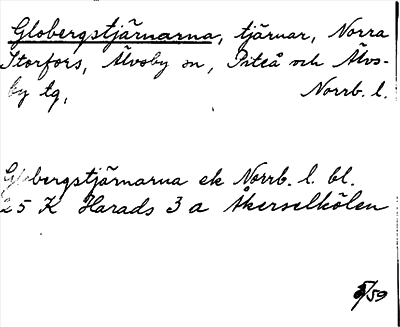 Globergstjärnarna, tjärnar, Norra
Storfors, Älvsby sn, Piteå och Älvs-
by tg, Norrb. l.
Globergstjärnarna ek Norrb. l. bl.
25 K Harads 3 a Åkerselkölen
5/59